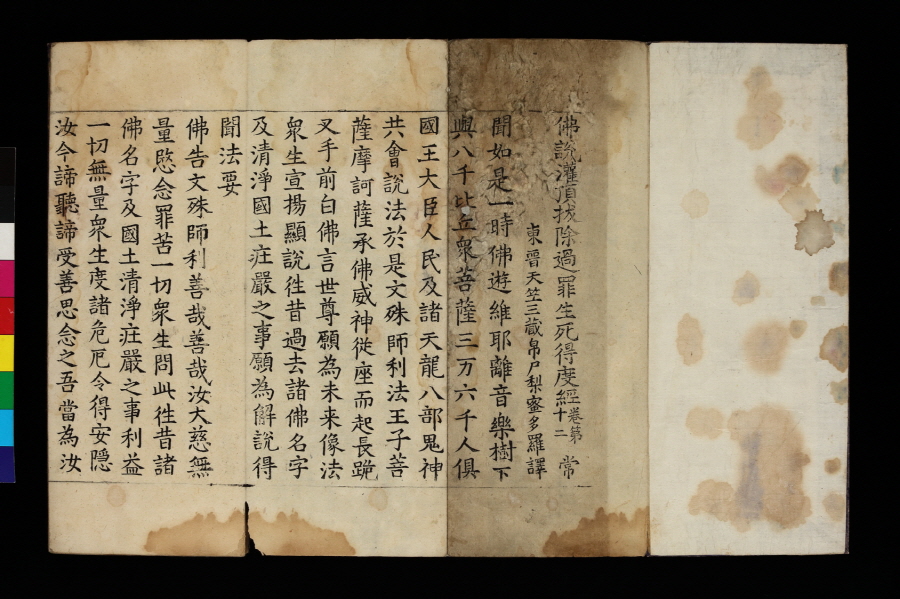 佛説灌頂抜除過罪生死得度經卷第十二 常
東晉天竺三藏帛尸梨蜜多羅譯
聞如是一時佛遊維耶離音樂樹下
與八千比丘衆菩薩三万六千人俱
國王大臣人民及諸天龍八部鬼神
共會說法於是文殊師利法王子菩
薩摩訶薩承佛威神從座而起長跪
叉手前白佛言世尊願為未来像法
衆生宣揚顯說徃昔過去諸佛名字
及清淨國土疘嚴之事願為解說得
聞法要
佛告文殊師利善哉善哉汝大慈無
量愍念罪苦一切衆生問此徃昔諸
佛名字及國土清淨疘嚴之事利益
一切無量衆生度諸危厄令得安隱
汝今諦聽諦受善思念之吾當為汝